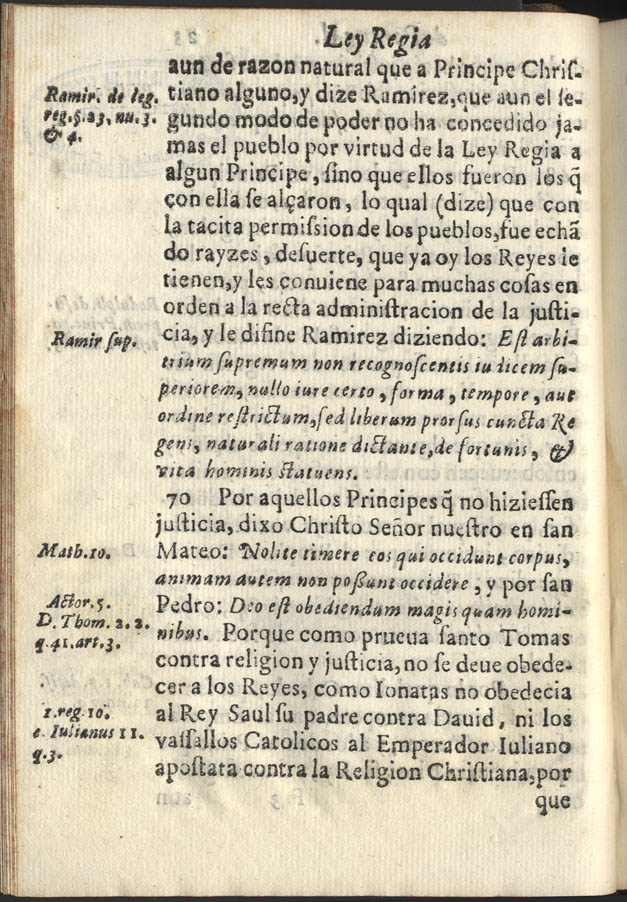 Ley Regia
aun de razon natural que a Principe Chris-
tiano alguno, y dize Ramirez, que aun el se-
gundo modo de poder no ha concedido ja-
mas el pueblo por virtud de la Ley Regia a
algun Principe, sino que ellos fueron los q̃
con ella se alçaron, lo qual (dize) que con
la tacita permission de los pueblos, fue echã
do rayzes, desuerte, que ya oy los Reyes le
tienen, y les conuiene para muchas cosas en
orden a la recta administracion de la justi-
cia, y le difine Ramirez diziendo: Est arbi-
trium supremum non recognoscentis iudicem su-
periorem, nullo iure certo, forma, tempore, aut
ordine restrictum, sed liberum prorsus cuncta Re
gens, naturali ratione dictante, de fortunis, &
vita hominis statuens.
70 Por aquellos Principes q̃ no hiziessen
justicia, dixo Christo Señor nuestro en san
Mateo: Nolite timere eos qui occidunt corpus,
animam autem non possunt occidere, y por san
Pedro: Deo est obediendum magis quam homi-
nibus. Porque como prueua santo Tomas
contra religion y justicia, no se deue obede-
cer a los Reyes, como Ionatas no obedecia
al Rey Saul su padre contra Dauid, ni los
vassallos Catolicos al Emperador Iuliano
apostata contra la Religion Christiana, por
que
Ramir. de leg.
reg. §. 23. nu. 3.
& 4.
Ramir sup.
Math. 10.
Actor. 5.
D. Thom. 2. 2.
q. 41. art. 3.
1. reg. 10.
e. Iulianus 11.
q. 3.